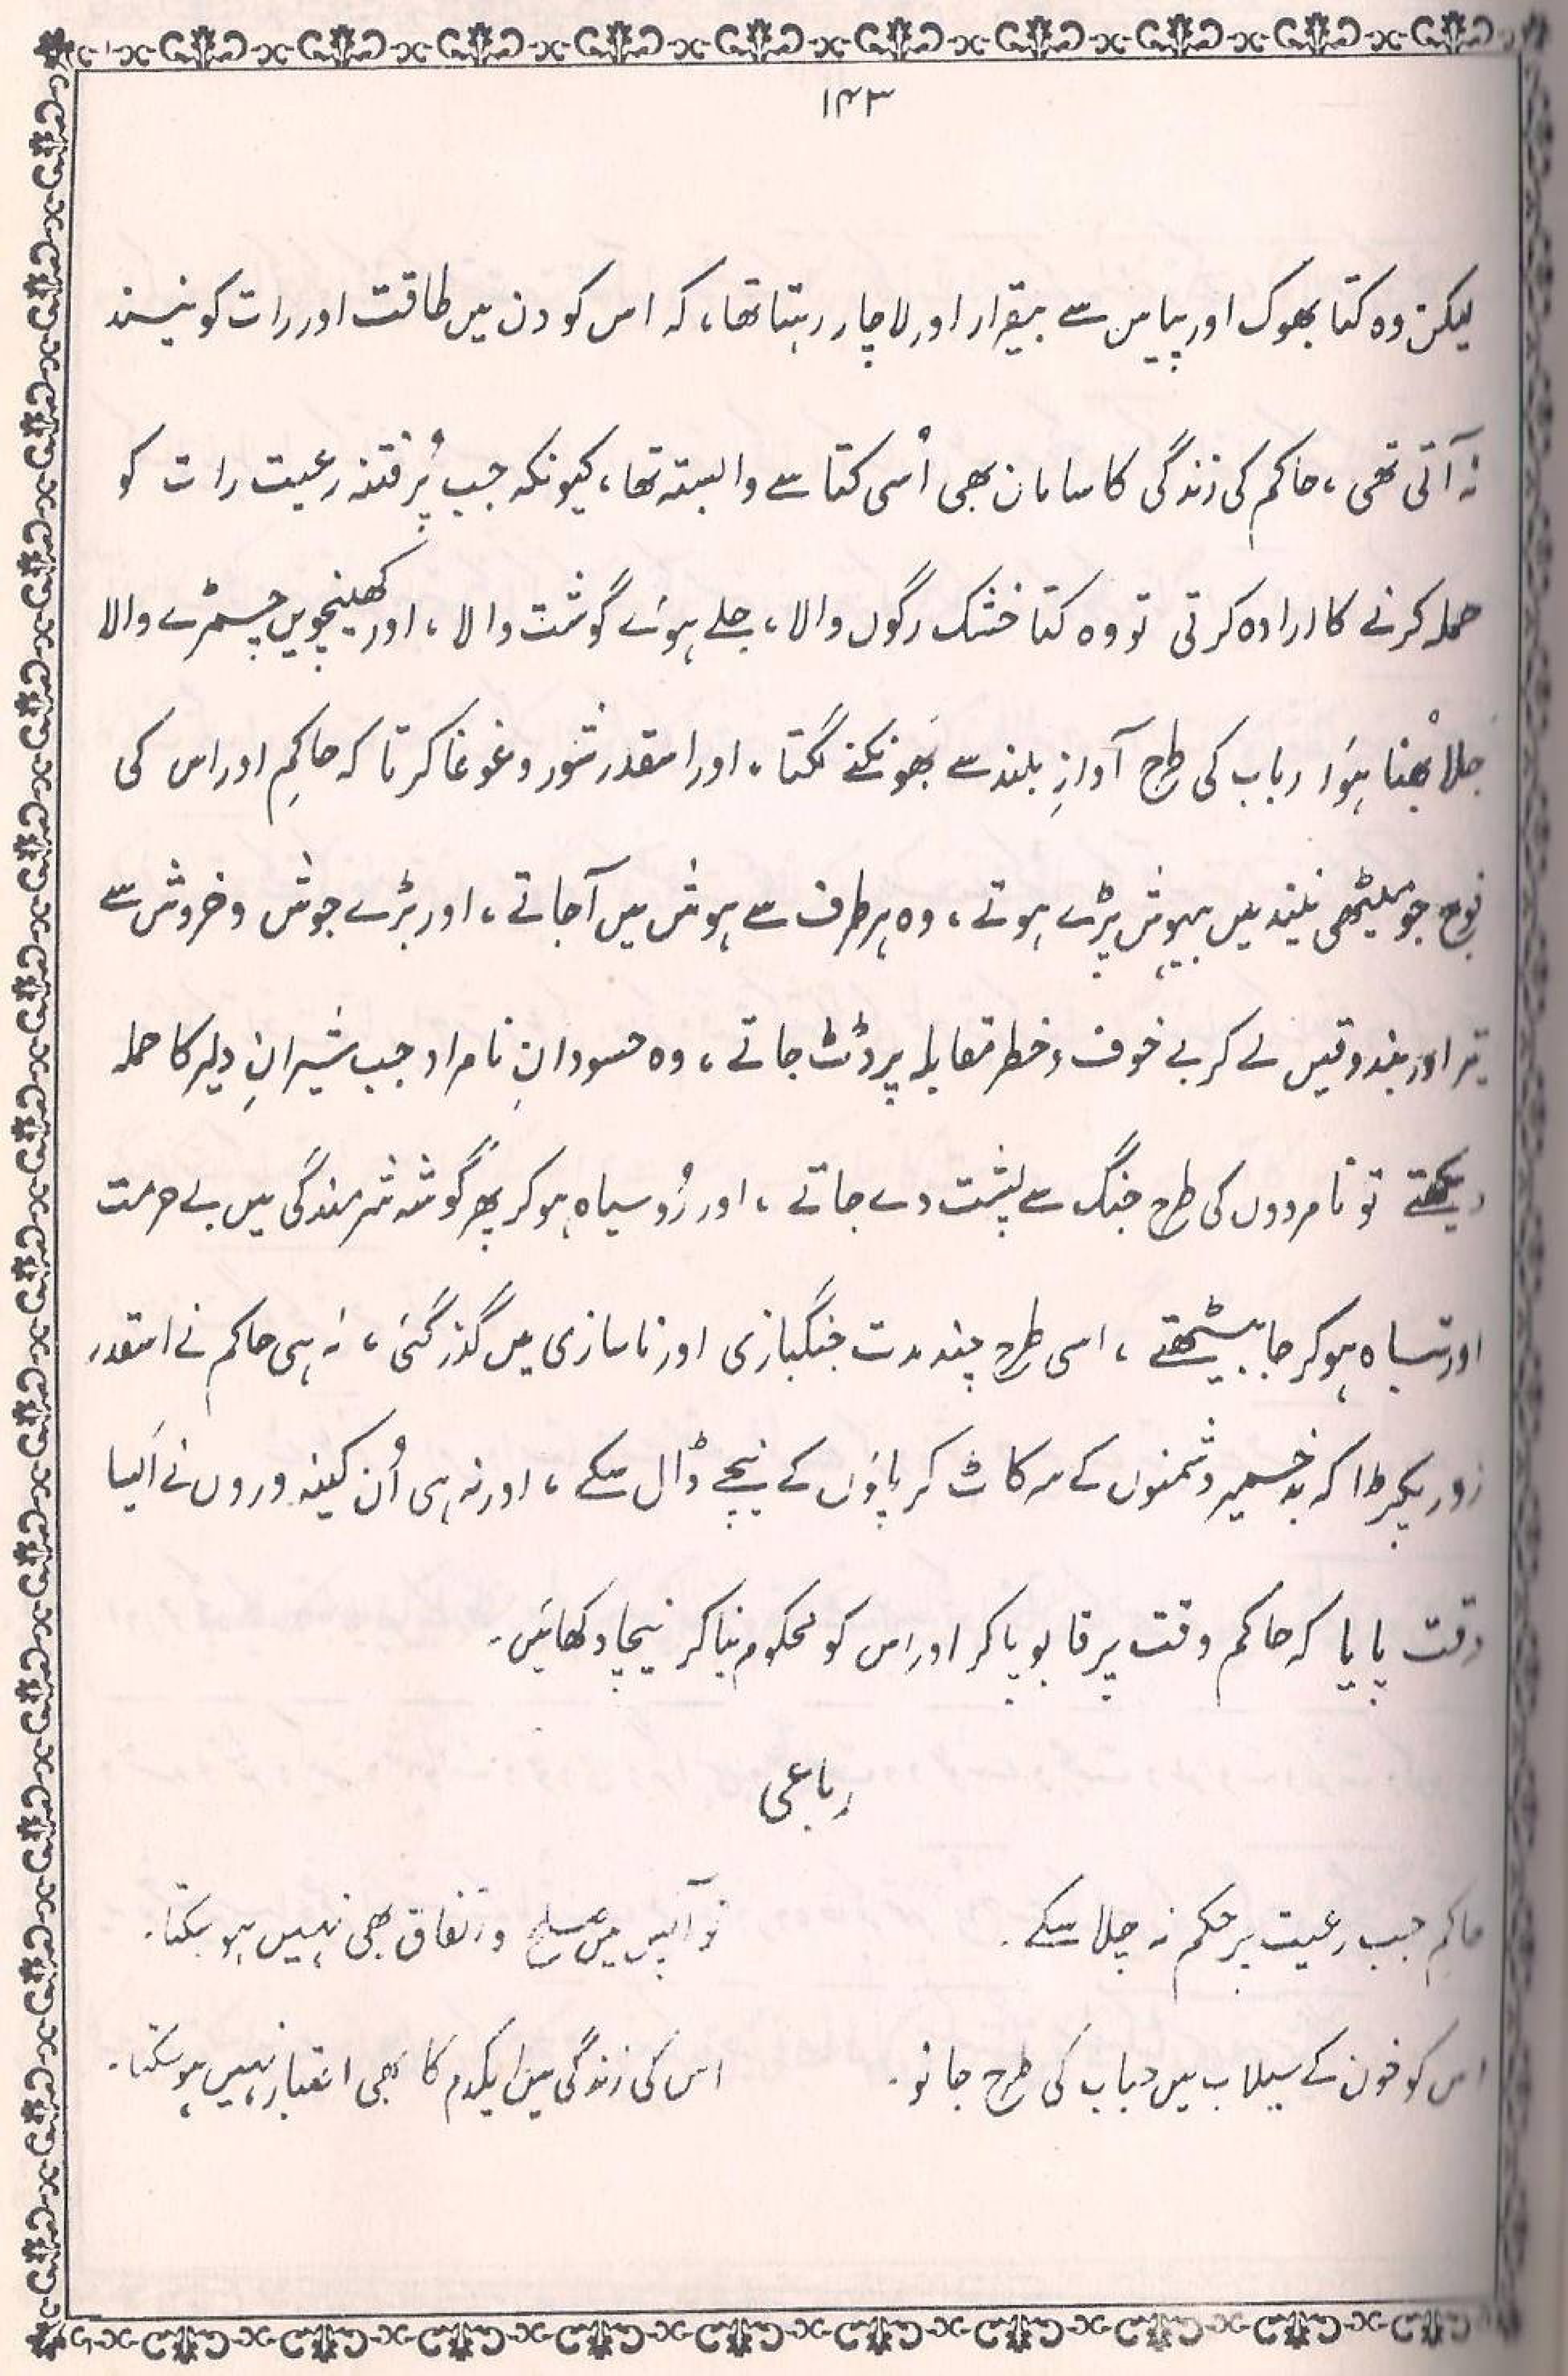 ۱۴۳
لیکن وہ کتا بھوک اور پیاس سے بیقرار اور لاچار رہتا تھا، کہ اس کو دن میں طاقت اور رات کو نیند
نہ آتی تھی، حاکم کی زندگی کا سامان بھی اُسی کتا سے وابستہ تھا، کیونکہ جب پُر فتنہ رعیت رات کو
حملہ کرنے کا ارادہ کرتی تو وہ کتا خشک رگوں والا، جلے ہوئے گوشت والا، اور کھینچویں چمڑے والا
جلا بُھنا ہوَا رباب کی طرح آوازِ بلند سے بَھونکنے لگتا، اور اسقدر شور و غوغا کرتا کہ حاکمِ اور اس کی
فوج جو میٹھی نیند میں بیہوش پڑے ہوتے، وہ ہر طرف سے ہوش میں آجاتے، اور بڑے جوش و خروش سے
تیر اور بندوقیں لے کر بے خوف و خطر مقابلہ پر ڈٹ جاتے، وہ حسودانِ نامراد جب شیرانِ دلیر کا حملہ
دیکھتے تو نامردوں کی طرح جنگ سے پشت دے جاتے، اور رُو سیاہ ہو کر پھر گوشہ شرمندگی میں بے حرمت
اور تباہ ہو کر جا بیٹھتے، اسی طرح چند مدت جنگبازی اور ناسازی میں گذر گئی، نہ ہی حاکم نے اسقدر
زور پکڑا کہ بد ضمیر دشمنوں کے سر کاٹ کر پاؤں کے نیچے ڈال سکے، اور نہ ہی اُن کینہ وروں نے اَیسا
وقت پایا کہ حاکم وقت پر قابو پا کر اور اس کو محکوم بنا کر نیچا دکھائیں۔
رباعی
حاکمِ جب رعیت پر حکم نہ چلا سکے۔ تو آپس میں صلح و اتفاق بھی نہیں ہو سکتا۔
اس کو خون کے سیلاب میں حباب کی طرح جانو۔ اس کی زندگی میں ایکدم کا بھی اعتبار نہیں ہو سکتا۔